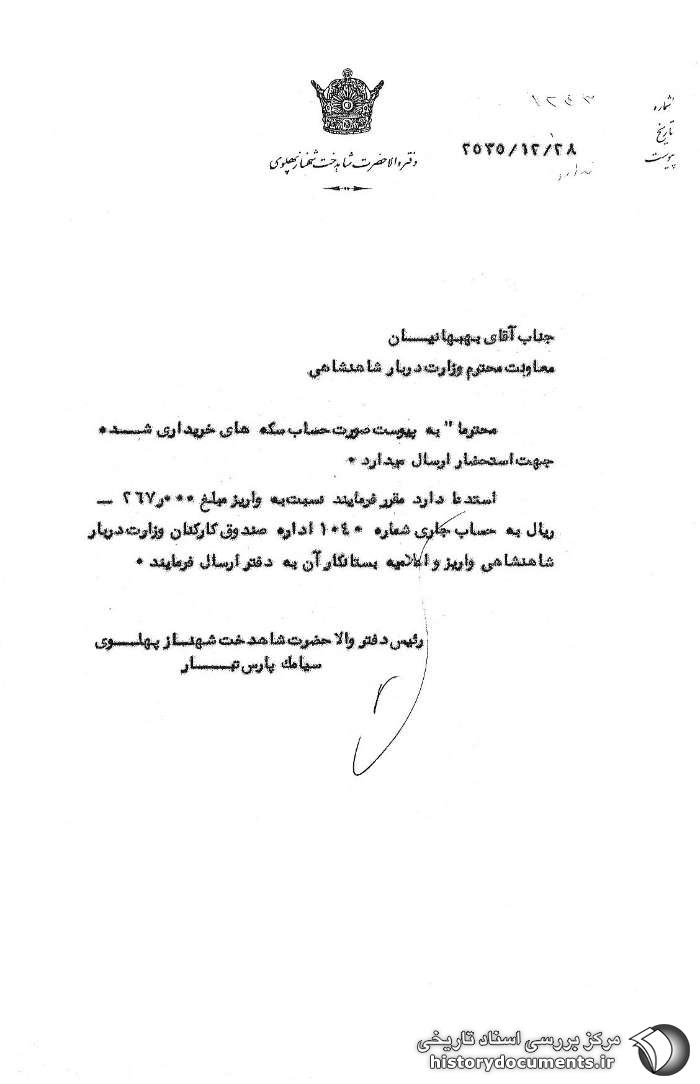 دفتر والاحضرت شاهدخت شهناز پهلوی
شماره
تاریخ ۲۵۳۵/۱۲/۲۸
پیوست ندارد
جناب آقای بهبهانیـــان
معاونت محترم وزارت دربار شاهنشاهی
محترما" به پیوست صورت حساب سکه های خریداری شـــده
جهت استحضار ارسال میدارد .
استدعا دارد مقرر فرمایند نسبت به واریز مبلغ ۲۶۷ر۰۰۰ ـ
ریال به حساب جاری شماره ۱۰۴۰ اداره صندوق کارکنان وزارت دربار
شاهنشاهی واریز و اعلامیه بستانکار آن به دفتر ارسال فرمایند .
رئیس دفتر والا حضرت شاهدخت شهنـــاز پهلـــوی
سیامک پارس تبـــــار
مرکز بررسی اسناد تاریخی
historydocuments.ir